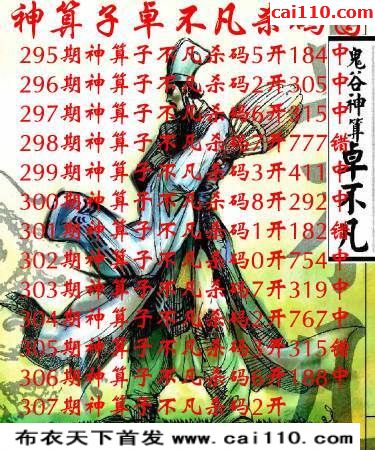 cai110.com
神算子卓不凡杀码图
鬼谷神算卓不凡
295期神算子不凡杀码5开184中
296期神算子不凡杀码2开305中
297期神算子不凡杀码6开315中
298期神算子不凡杀码7开777错
299期神算子不凡杀码3开411中
300期神算子不凡杀码8开292中
301期神算子不凡杀码1开182错
302期神算子不凡杀码0开754中
303期神算子不凡杀码7开319中
304期神算子不凡杀码2开767中
305期神算子不凡杀码3开315错
306期神算子不凡杀码6开188中
307期神算子不凡杀码2开
布衣天下首发 www.cai110.com